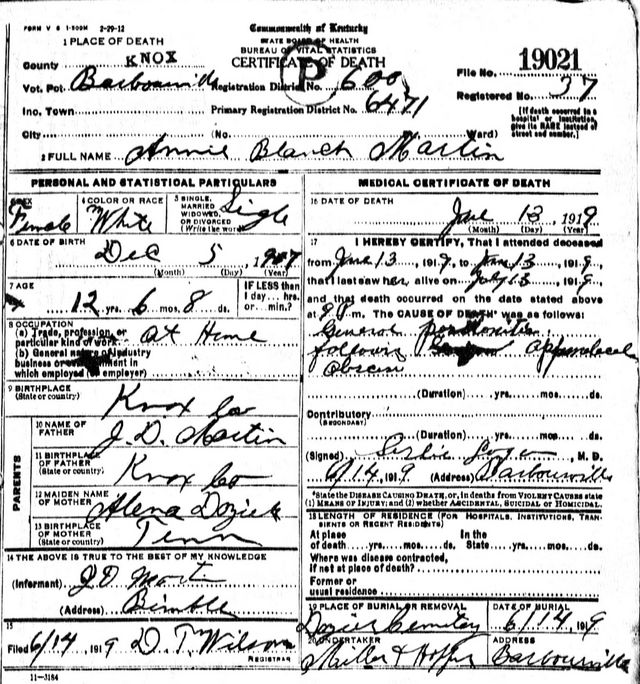 FORM V S 1-500M 2-29-12
Commonwealth of Kentucky
STATE BOARD OF HEALTH
BUREAU OF VITAL STATISTICS
CERTIFICATE OF DEATH
P
1 PLACE OF DEATH
County KNOX
File No. 19021
Vot. Pct. Barbourville Registration District No. 600
Registered No. 37
Inc. Town Primary Registration District No. 6471
[If death occurred in a hospital or institution, give its NAME instead of street and number.]
City (No. Ward)
2 FULL NAME Annie Blanch Martin
PERSONAL AND STATISTICAL PARTICULARS
3 SEX Female
4 COLOR OR RACE White
5 SINGLE, MARRIED WIDOWED, OR DIVORCED (Write the word) Sigle
6 DATE OF BIRTH
Dec 5, 1907
(Month) (Day) (Year)
7 AGE
12 yrs. 6 mos. 8 ds.
IF LESS than 1 day... hrs. or... min.?
8 OCCUPATION
(a) Trade, profession, or particular kind of work At Home
(b) General nature of industry business or establishment in which employed (or employer)
9 BIRTHPLACE
(State or country) Knox Co
PARENTS
10 NAME OF FATHER J. D. Martin
11 BIRTHPLACE OF FATHER (State or country) Knox Co
12 MAIDEN NAME OF MOTHER Alena Dozier
13 BIRTHPLACE OF MOTHER (State or country) Tenn
14 THE ABOVE IS TRUE TO THE BEST OF MY KNOWLEDGE
(Informant) J D Martin
(Address) Bimble
15
Filed 6/14, 1919 D. T. Wilson
REGISTRAR
11-3184
MEDICAL CERTIFICATE OF DEATH
16 DATE OF DEATH
June 13, 1919
(Month) (Day) (Year)
17 I HEREBY CERTIFY, That I attended deceased
from June 13, 1919, to June 13, 1919,
that I last saw her alive on 13, 1919,
and that death occurred on the date stated above
at 9 P.m. The CAUSE OF DEATH* was as follows:
General
following
(Duration) yrs. mos. ds.
Contributory
(SECONDARY)
(Duration) yrs. mos. ds.
(Signed) Leslie M. D.
6/14, 1919 (Address) Barbourville
*State the DISEASE CAUSING DEATH, or, in deaths from VIOLENT CAUSES state (1) MEANS OF INJURY; and (2) whether ACCIDENTAL, SUICIDAL or HOMICIDAL.
18 LENGTH OF RESIDENCE (FOR HOSPITALS, INSTITUTIONS, TRANSIENTS OR RECENT RESIDENTS)
At place of death yrs. mos. ds. In the State yrs. mos. ds.
Where was disease contracted, if not at place of death?
Former or usual residence
19 PLACE OF BURIAL OR REMOVAL Dozier Cemetery
DATE OF BURIAL 6/14, 1919
20 UNDERTAKER Miller &
ADDRESS Barbourville